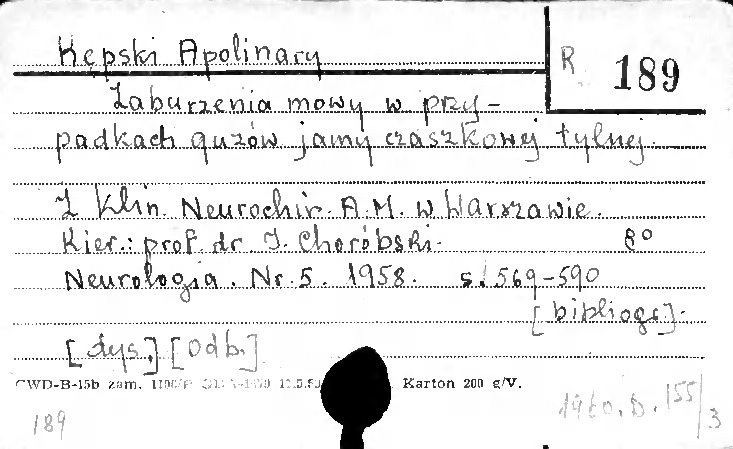 Kępski Apolinary
R 189
Zaburzenia mowy w przy-
padkach guzów jamy czaszkowej tylnej.
Z Klin. Neurochir. A.M. w Warszawie.
Kier.: prof. dr. J. Choróbski. 8°
Neurologja. Nr. 5. 1958. s. 569-590
[bibliogr].
[dys.] [odb.]
CWD-B-15b zam. Karton 200 g/V.
189
1960. D. 155/3